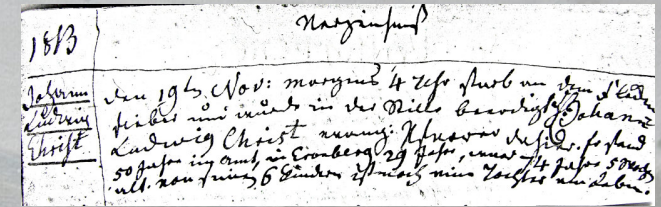 Verzeichniß
1813
Johann
Ludwig
Christ
den 19ts Nov: morgens 4 Uhr starb an dem
fieber und wurde in der Stille beerdigt H. Johann
Ludwig Christ evang: Pfarrer dahier. Er stand
50 Jahre im Amt, in Cronberg 29 Jahr, war 74 Jahre 5
alt. von seinen 6 Kindern ist noch eine Tochter am Leben.